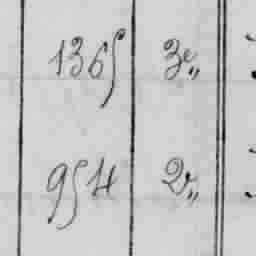 1365 3e„
954 2e„